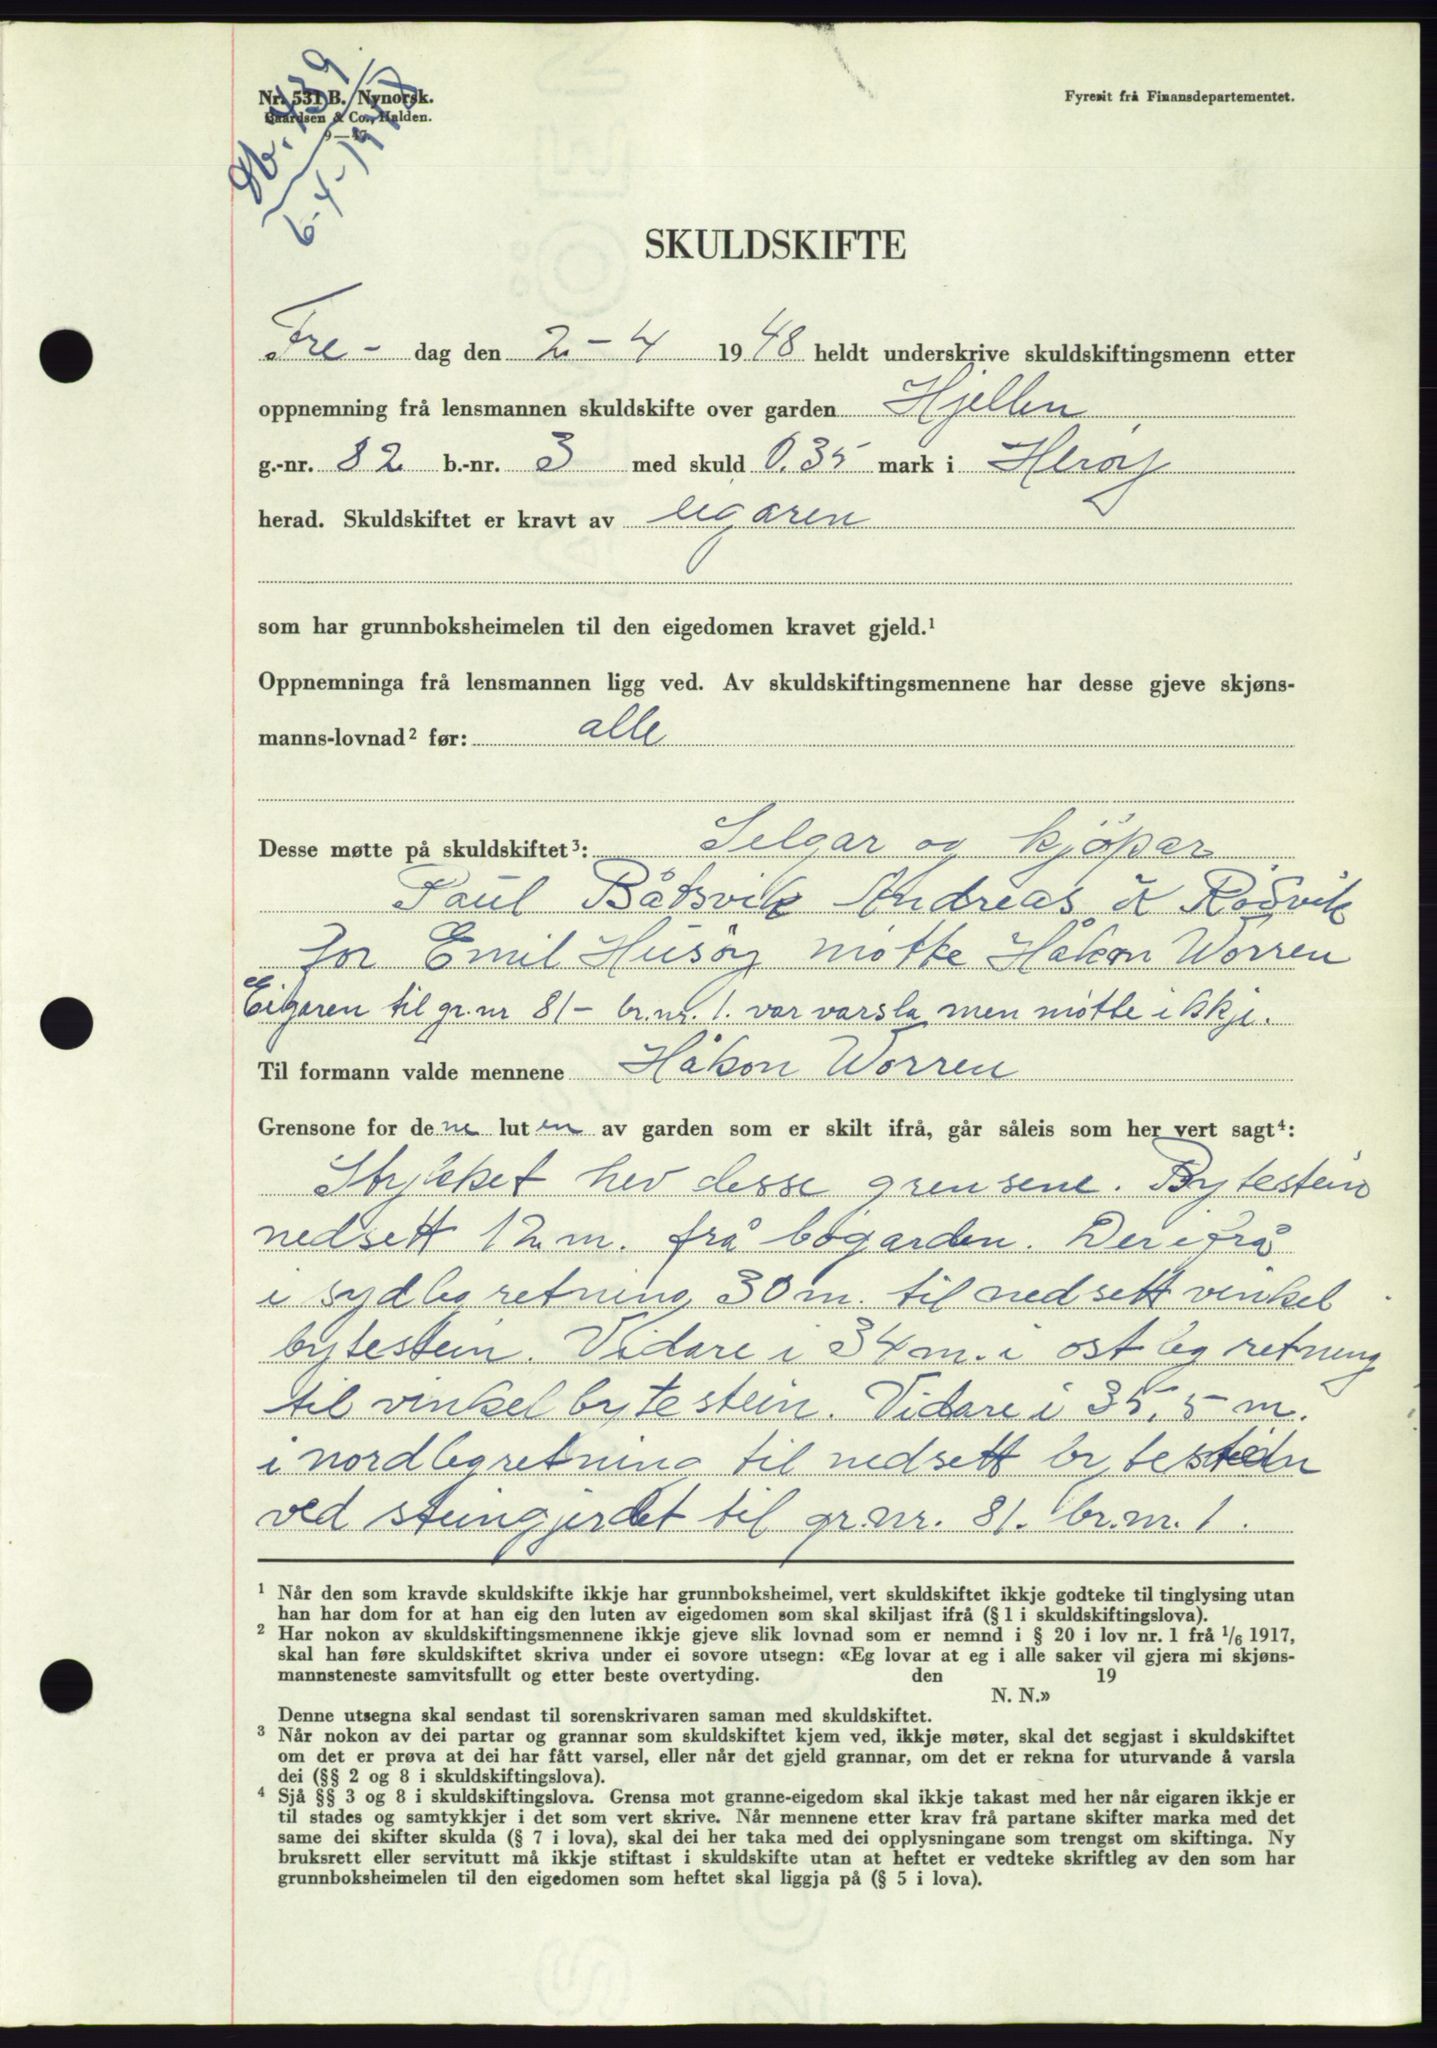 Nr. 531 B. Nynorsk.
Gaardsen & Co., Halden.
9—47
Nb. 439
6-4-1948
Fyresit frå Finansdepartementet.
SKULDSKIFTE
Fre- dag den 2-4 1948 heldt underskrive skuldskiftingsmenn etter
oppnemning frå lensmannen skuldskifte over garden Hjellen
g.-nr. 82 b.-nr. 3 med skuld 0.35 mark i Herøy
herad. Skuldskiftet er kravt av eigaren
som har grunnboksheimelen til den eigedomen kravet gjeld.¹
Oppnemninga frå lensmannen ligg ved. Av skuldskiftingsmennene har desse gjeve skjøns-
manns-lovnad² før: alle
Desse møtte på skuldskiftet³: Selgar og kjöpar
Paul Båtsvik Andreas K Rødsvik
for Emil Husøy møtte Håkon Worren
Eigaren til gr.nr 81- br.nr. 1. var varsla men møtte ikkje.
Til formann valde mennene Håkon Worren
Grensone for dene luten av garden som er skilt ifrå, går såleis som her vert sagt⁴:
Stykket hev desse grensene. Bytestein
nedsett 12 m. frå bøgarden. Der ifrå
i sydleg retning 30 m. til nedsett vinkel
bytestein. Vidare i 34 m. i ostleg retning
til vinkel bytestein. Vidare i 35,5 m.
i nordleg retning til nedsett bytestein
ved steingjerdet til gr.nr. 81. br.nr. 1.
¹ Når den som kravde skuldskifte ikkje har grunnboksheimel, vert skuldskiftet ikkje godteke til tinglysing utan
han har dom for at han eig den luten av eigedomen som skal skiljast ifrå (§ 1 i skuldskiftingslova).
² Har nokon av skuldskiftingsmennene ikkje gjeve slik lovnad som er nemnd i § 20 i lov nr. 1 frå 1/6 1917,
skal han føre skuldskiftet skriva under ei sovore utsegn: «Eg lovar at eg i alle saker vil gjera mi skjøns-
mannsteneste samvitsfullt og etter beste overtyding. den 19
N. N.»
Denne utsegna skal sendast til sorenskrivaren saman med skuldskiftet.
³ Når nokon av dei partar og grannar som skuldskiftet kjem ved, ikkje møter, skal det segjast i skuldskiftet
om det er prøva at dei har fått varsel, eller når det gjeld grannar, om det er rekna for uturvande å varsla
dei (§§ 2 og 8 i skuldskiftingslova).
⁴ Sjå §§ 3 og 8 i skuldskiftingslova. Grensa mot granne-eigedom skal ikkje takast med her når eigaren ikkje er
til stades og samtykkjer i det som vert skrive. Når mennene etter krav frå partane skifter marka med det
same dei skifter skulda (§ 7 i lova), skal dei her taka med dei opplysningane som trengst om skiftinga. Ny
bruksrett eller servitutt må ikkje stiftast i skuldskifte utan at heftet er vedteke skriftleg av den som har
grunnboksheimelen til den eigedomen som heftet skal liggja på (§ 5 i lova).